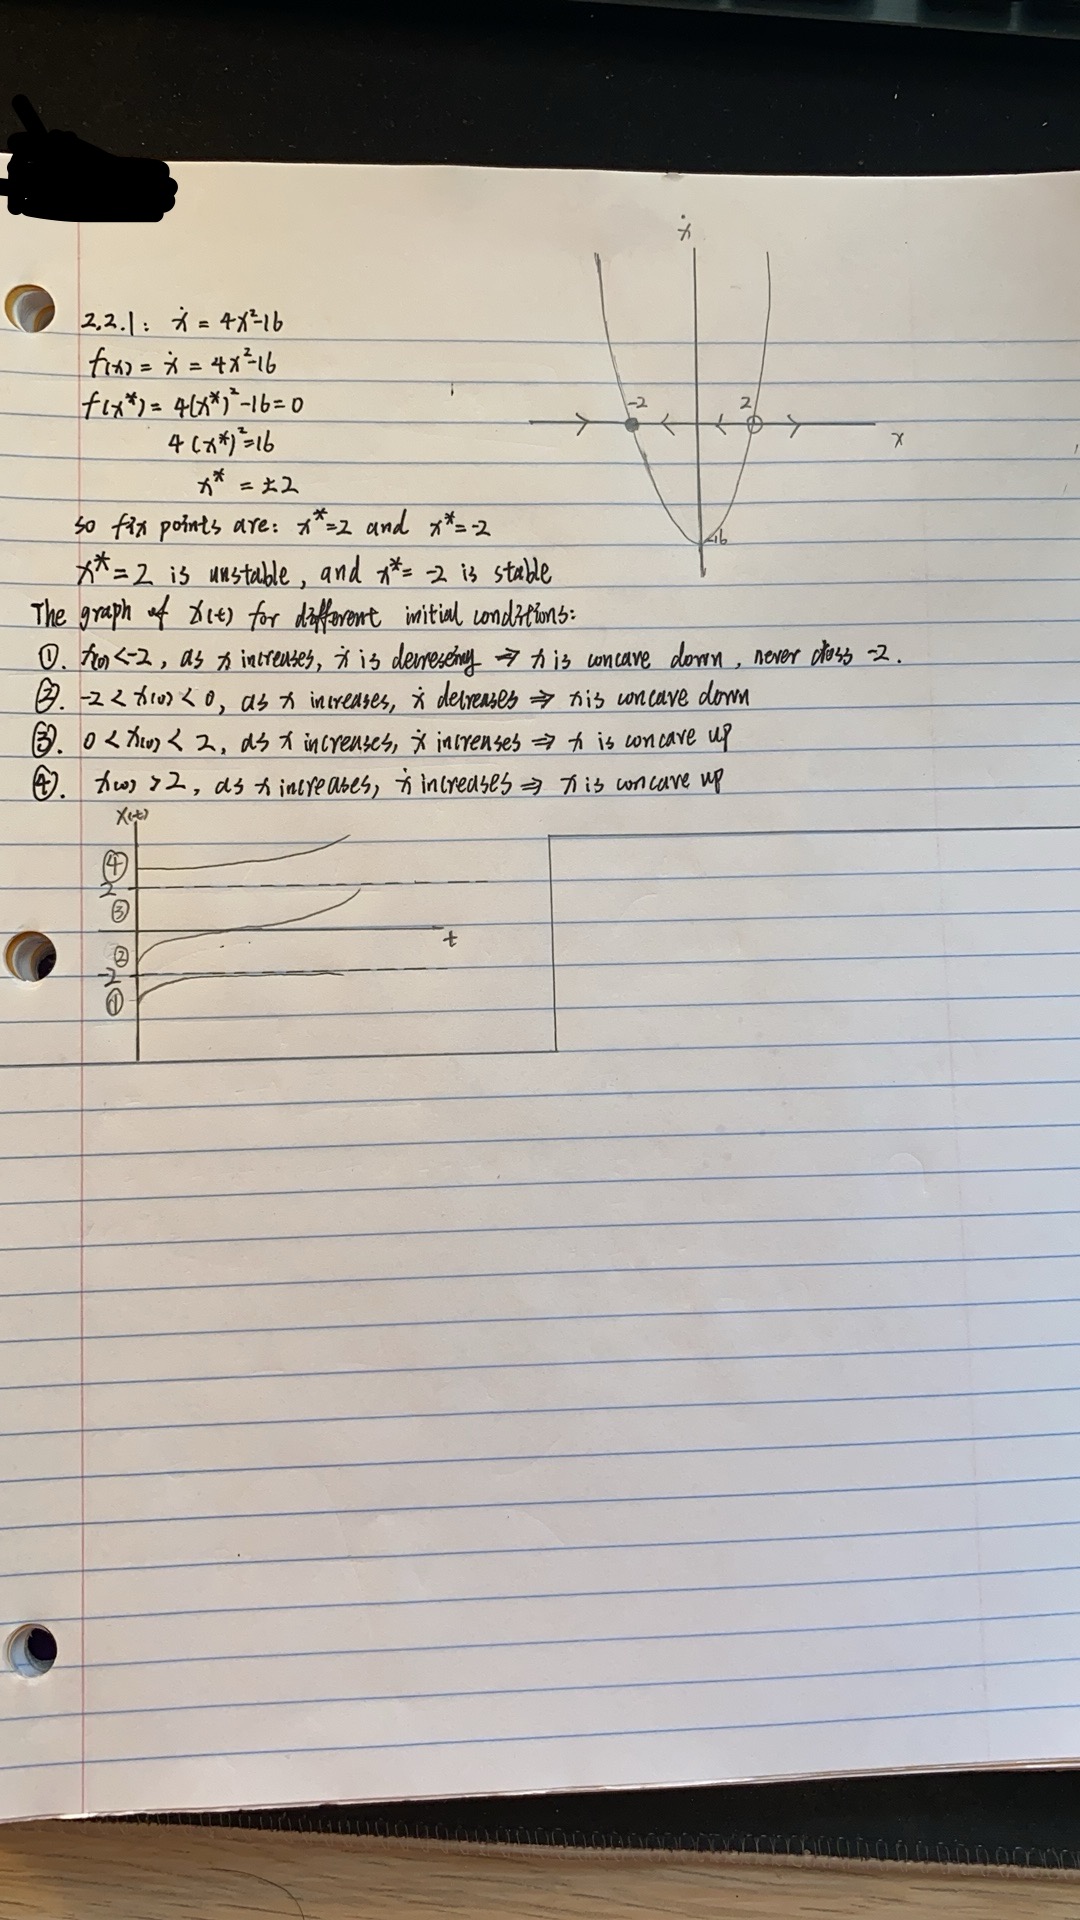 ẋ
2.2.1: ẋ = 4x²-16
f(x) = ẋ = 4x²-16
f(x*) = 4(x*)²-16=0
-2 2
x
4(x*)²=16
x* = ±2
so fix points are: x*=2 and x*=-2
-16
x*=2 is unstable, and x*= -2 is stable
The graph of x(t) for different initial conditions:
①. x(0) <-2, as x increases, ẋ is decreseing ⇒ x is concave down, never cross -2.
②. -2 < x(0) < 0, as x increases, ẋ decreases ⇒ x is concave down
③. 0 < x(0) < 2, as x increases, ẋ increases ⇒ x is concave up
④. x(0) > 2, as x increases, ẋ increases ⇒ x is concave up
x(t)
④
2
③
t
②
-2
①